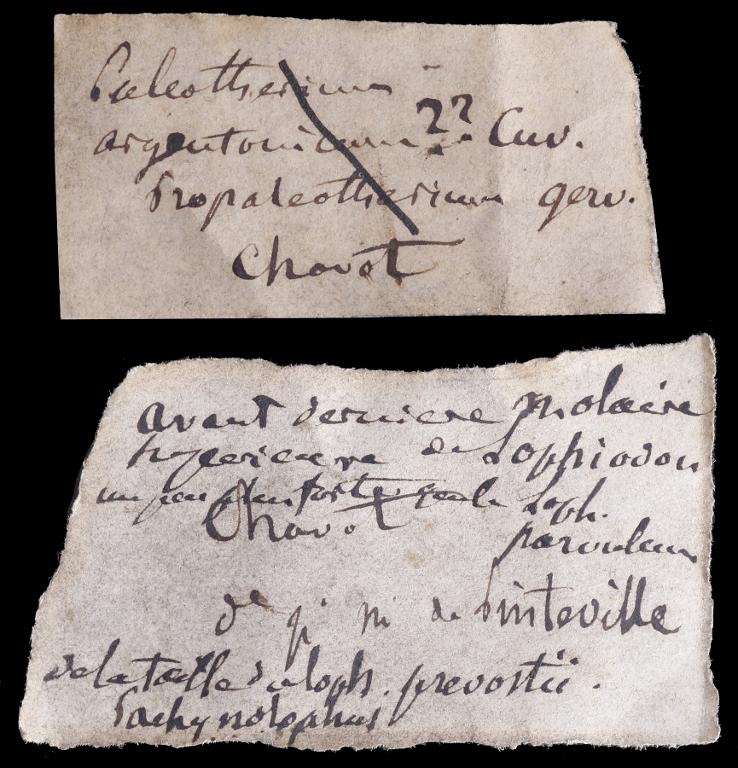 Paleotherium
argentonicum ?? Cuv.
Propaleotherium gerv.
Chavot
avant derniere molaire
superieure de Lophiodon
un peu plus forte que le Loph.
Chavot parvulum
de Pinteville
de la taille du loph. prevostii.
Pachynolophus